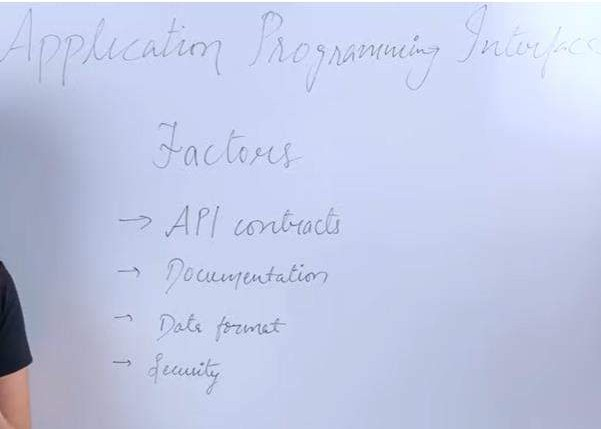 Application Programming Interface
Factors
→ API contracts
→ Documentation
→ Data format
→ Security